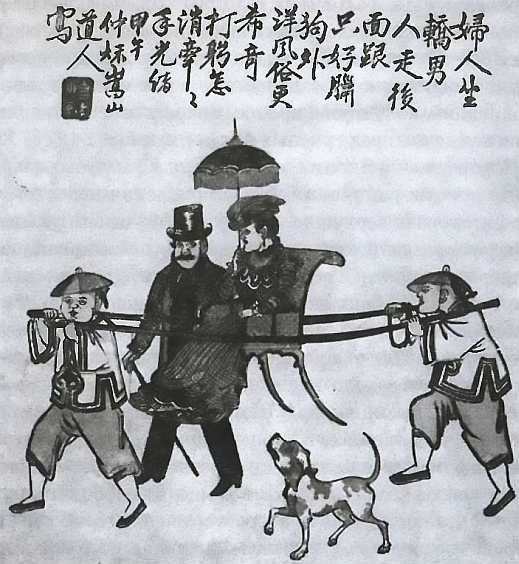 婦人坐
轎男
人走後
面跟
只好獵
狗外
洋風俗更
希奇
打躬怎
消牽々
手光緒
甲午
仲秌嵩山
道人
寫